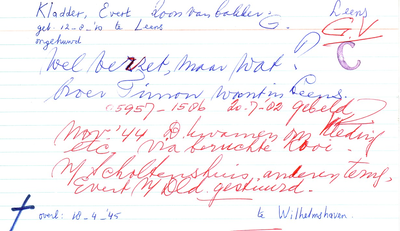 Kladder, Evert zoon van bakker G. Leens
geb. 12-8-'10 te Leens G.V.
ongehuwd C
Wel verzet, maar wat?
broer Simon woont in Leens.
05957-1586 20-7-02 gebeld
Nov. '44 D. kwamen om kleding
etc. via beruchte Kooi
n/ Scholtenshuis, anderen terug,
Evert n/ Dld. gestuurd.
overl: 18-4-'45 te Wilhelmshaven.